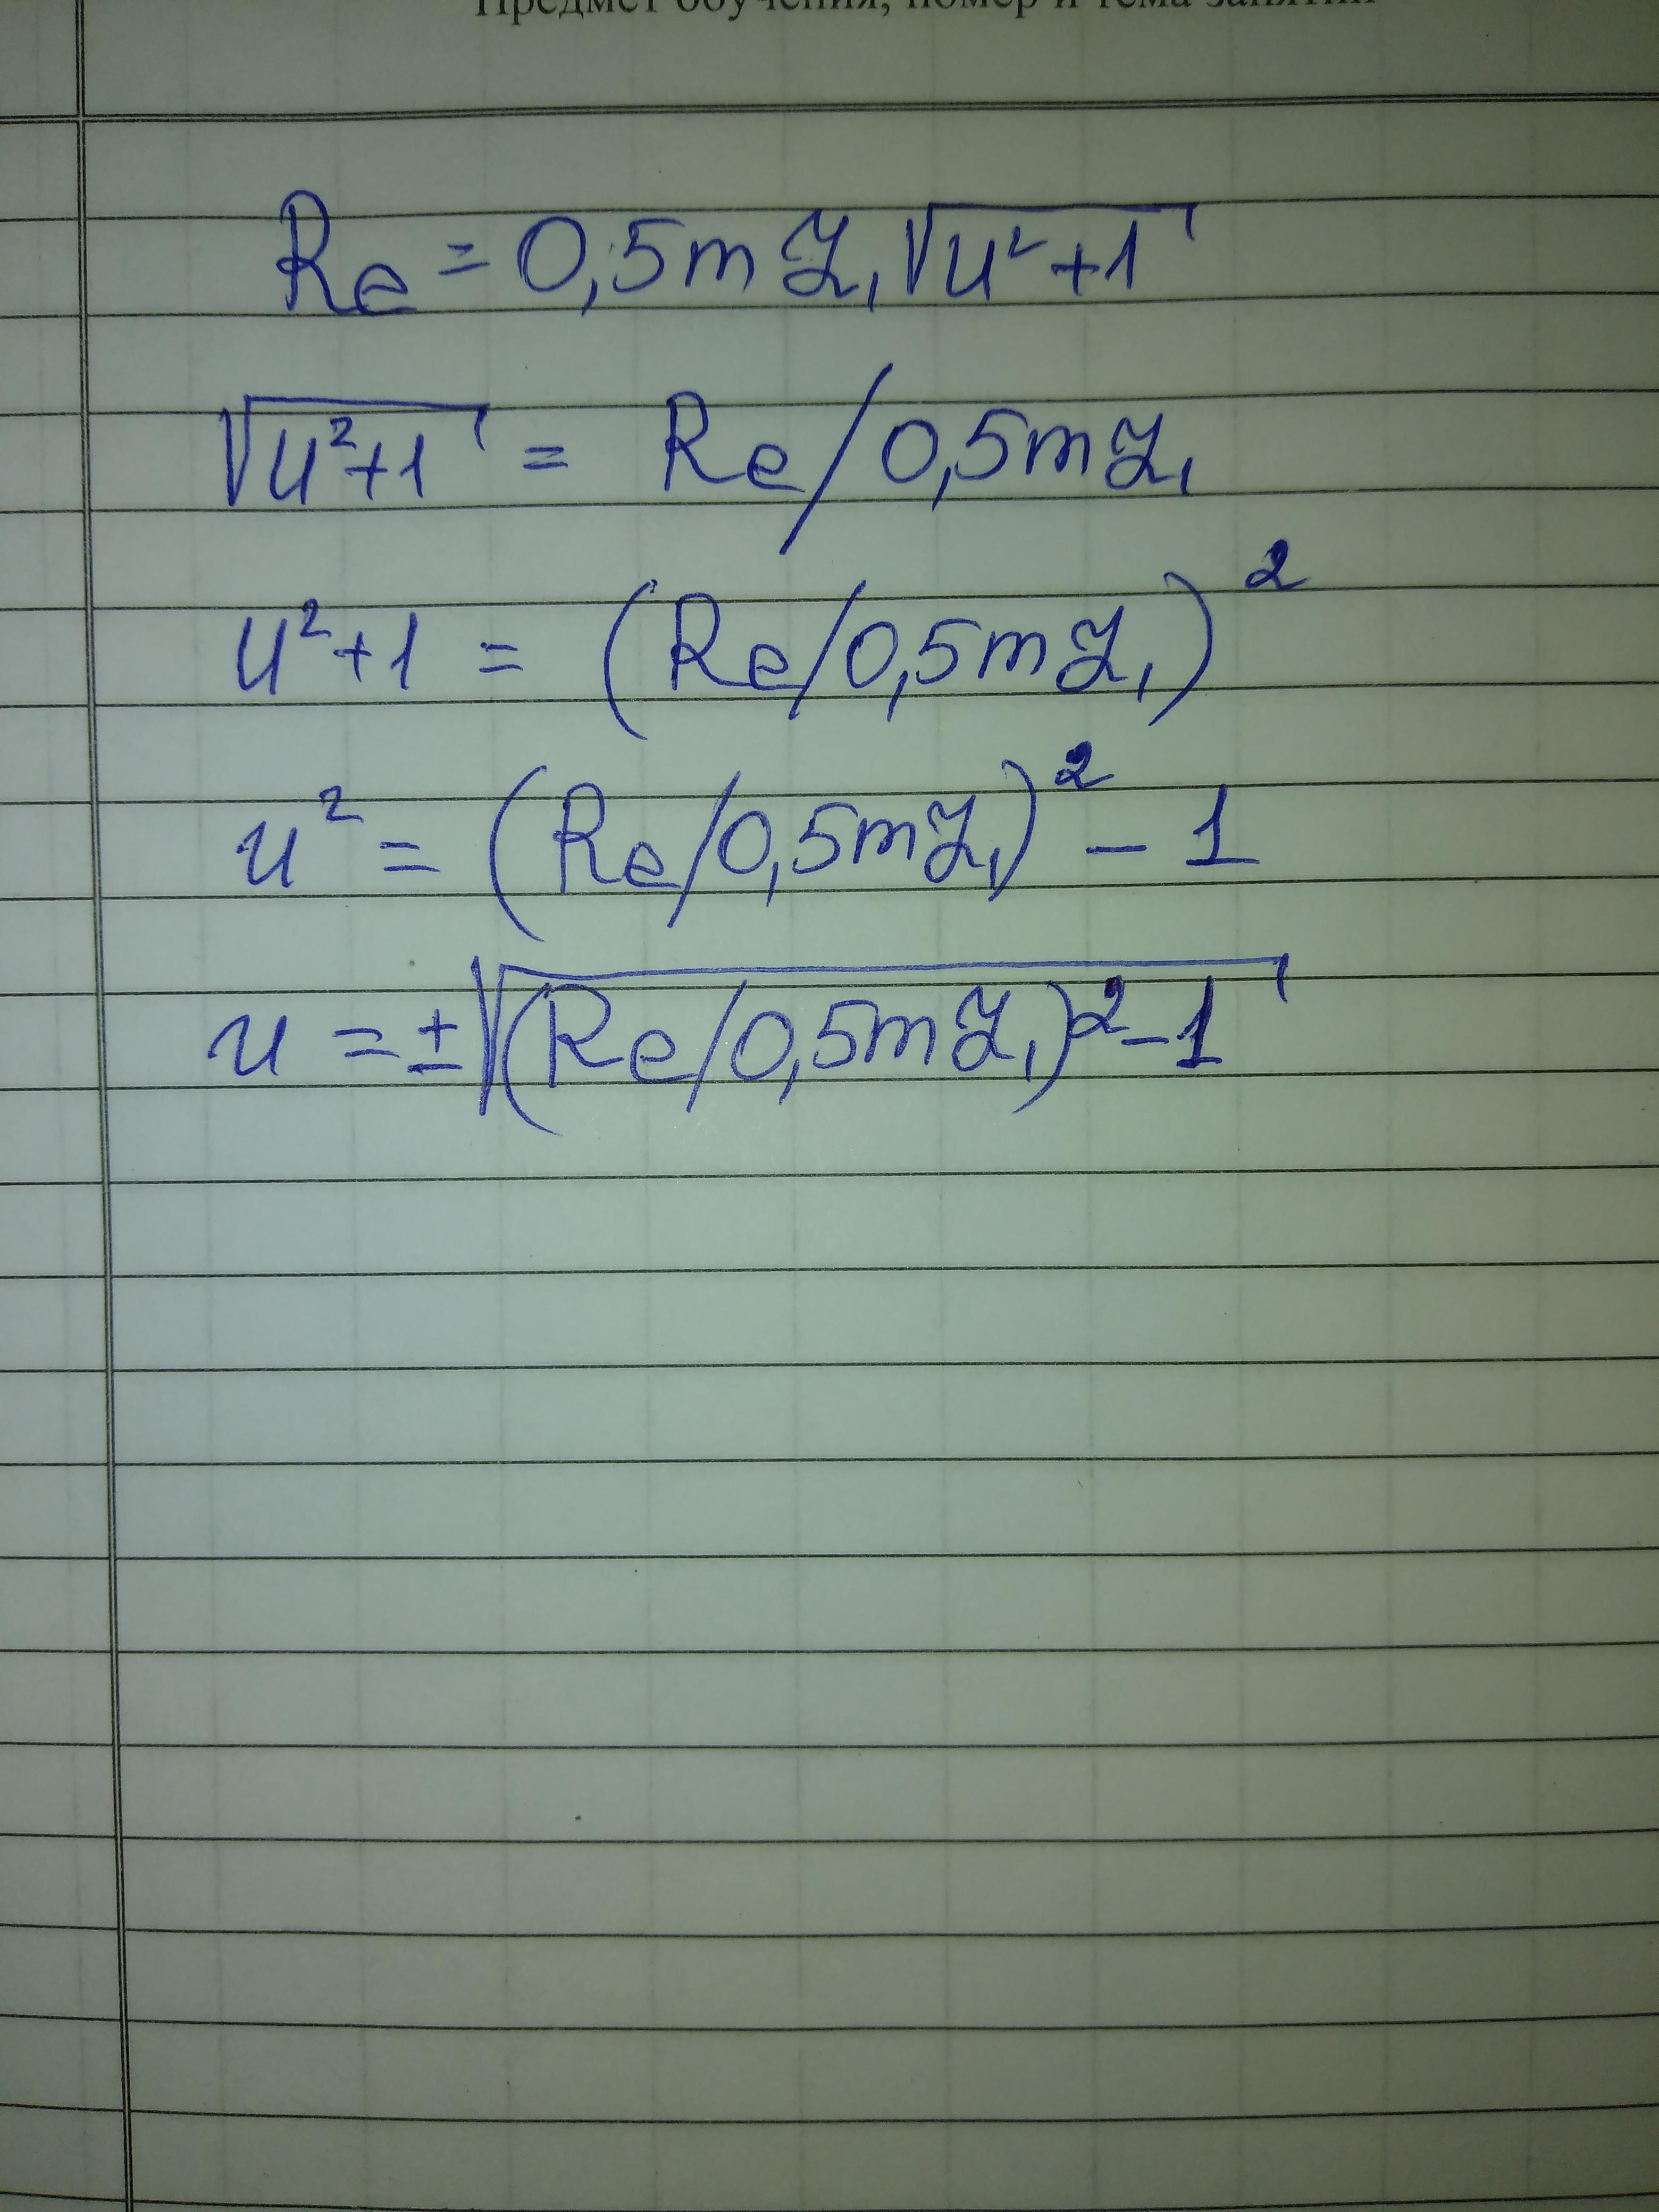 Предмет обучения, номер и тема занятий
Re = 0,5mZ₁√u²+1
√u²+1 = Re/0,5mZ₁
u²+1 = (Re/0,5mZ₁)²
u² = (Re/0,5mZ₁)² - 1
u = ±√(Re/0,5mZ₁)²-1